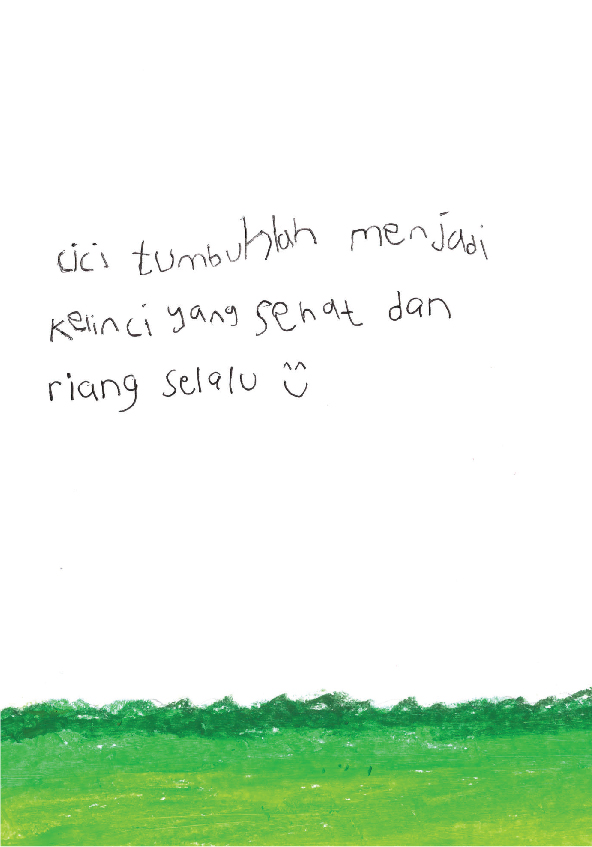 cici tumbuhlah menjadi
kelinci yang sehat dan
riang selalu